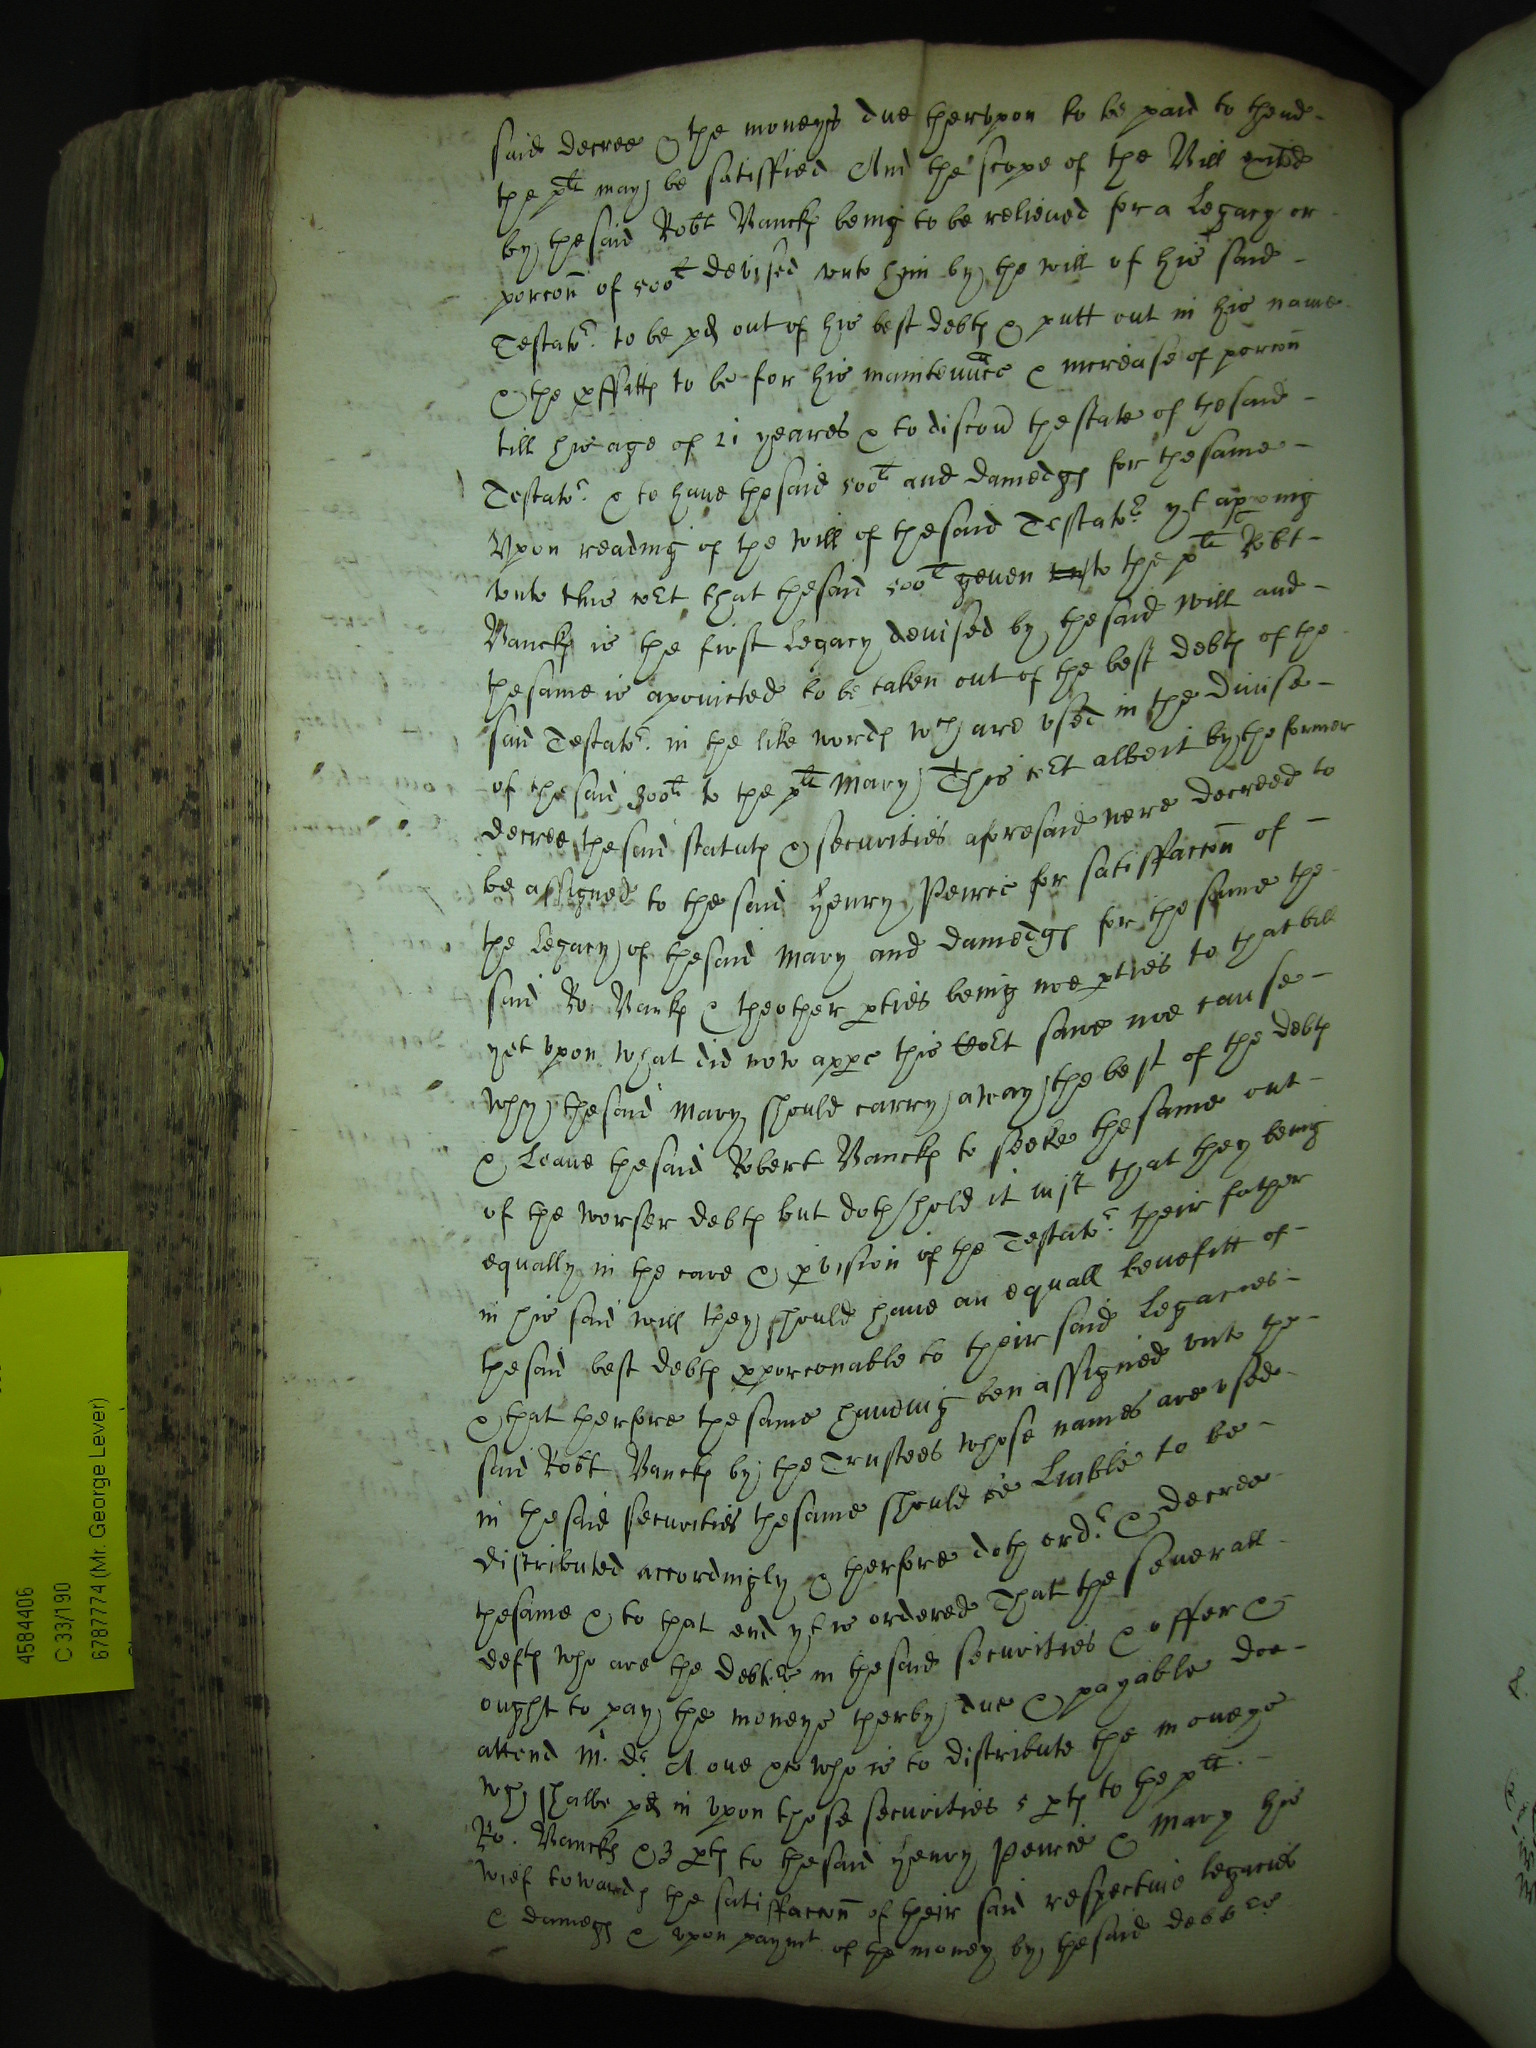 said decree & the moneys due therupon to be paid to thend
the plt may be satisffied And the scope of the Bill exħited
by the said Robt Banckes being to be relieued for a Legacy or
porcon of 500li devised unto him by the will of his said
Testator to be pd out of his best debts & putt out in his name
& the proffitts to be for his maintennce & increase of porcon
till his age of 21 yeares & to discou the state of the said
Testator & to haue the said 500li and damedgs for the same
Upon reading of the will of the said Testator yt apping
unto this cort that the said 500li geuen to the plt Robt
Banckes is the first Legacy deuised by the said will and
the same is apointed to be taken out of the best debts of the
said Testator in the like words wch are used in the Deuise
of the said 300li to the plt Mary This cort albeit by the former
decree the said statuts & securities aforesaid were decreed to
be assigned to the said Henry Peirce for satisffaccon of
the Legacy of the said Mary and damedgs for the same the
said Ro Banks & the other pties being noe pties to that bill
yet upon what did now appe this Cort sawe noe cause
why the said Mary should carry away the best of the debts
& Leaue the said Robert Banckes to seeke the same out
of the worser debts but doth hold it iust that they being
equally in the care & pvision of the Testator their father
in his said will they should haue an equall benefitt of
the said best debts pporconable to their said Legacies
& that therfore the same haueing ben assigned unto the
said Robt Banckes by the Trustees whose names are used
in the said securities the same should be Liable to be
distributed accordingly & therfore doth order & decree
the same & to that end yt is ordered That the seuerall
defts who are the debtors in the said securities & offer &
ought to pay the moneys therby due & payable doe
attend Mr dr who is to distribute the moneys
wch shalbe pd in upon those securities 5 pts to the plt
Ro. Banckes & 3 pts to the said Henry Peirce & Mary his
wief towards the satisffaccon of their said respectiue legacies
& damegs & upon paymt of the money by the said debtors
4584406
C 33/190
6787774 (Mr. George Lever)